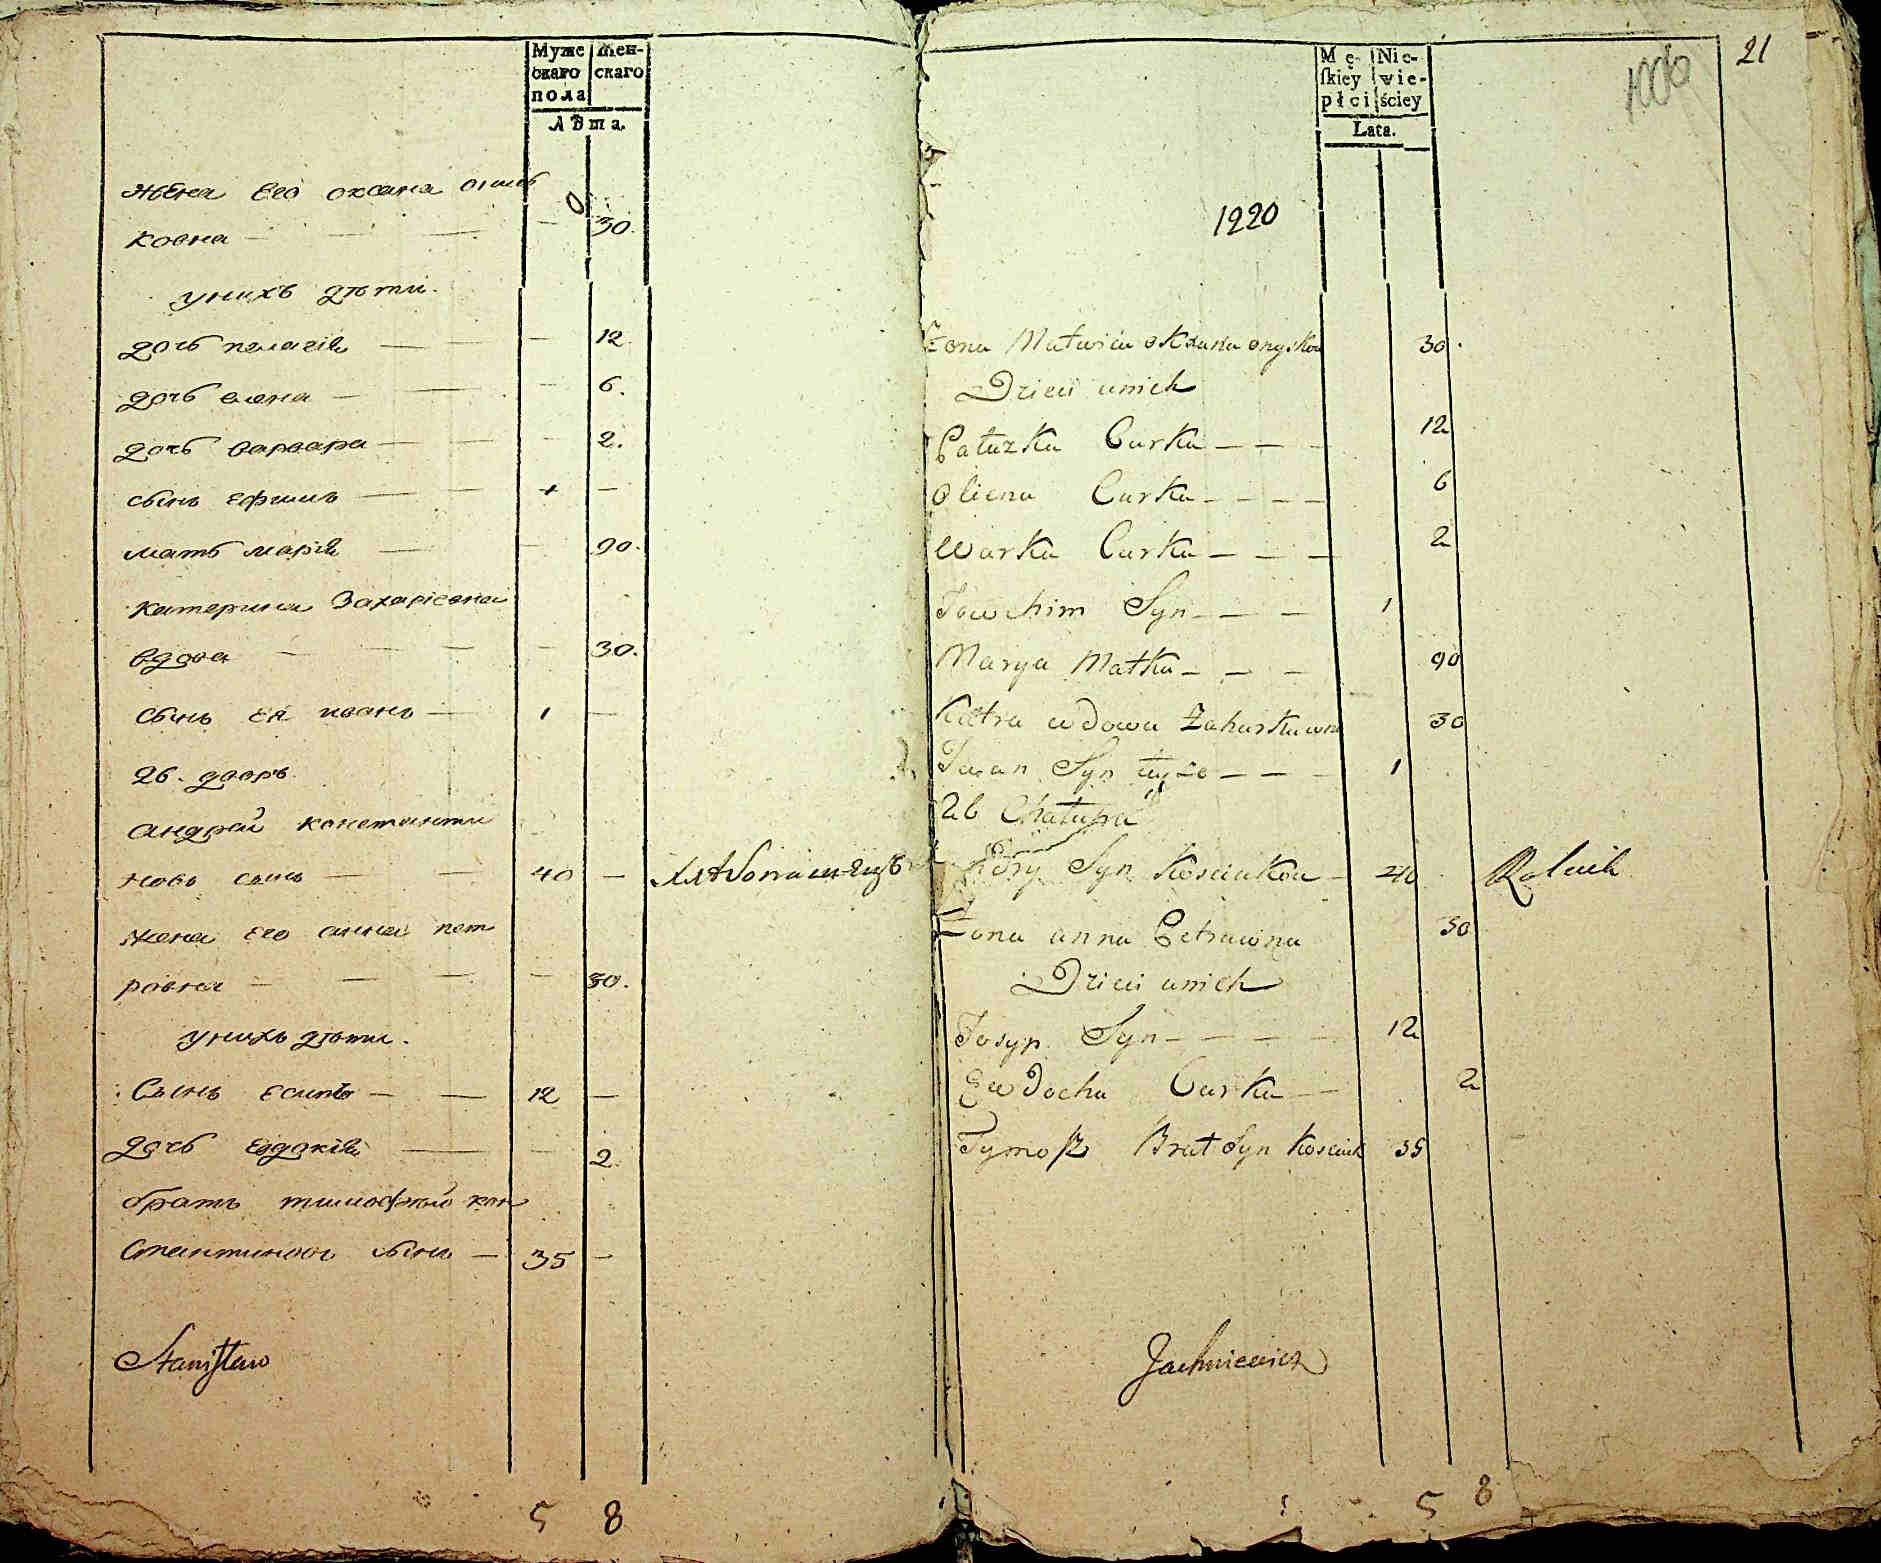 Муже
скаго
пола
жен-
скаго
Лѣта.
жена его оксана ониѣ
ковна — — — — 30.
у нихъ дѣти.
дочь пелагія — — — 12
дочь елена — — — 6.
дочь варвара — — — 2.
сынъ ефимъ — — 1 —
мать марія — — 90.
катерина Захаріевна
вдова — — — — — 30.
сынъ ея иванъ — 1 —
26. дворъ.
андрей константи
новъ сынъ — — 40 — хлѣбопашецъ
жена его анна пет
ровна — — — — 30.
у нихъ дѣти.
Сынъ есипъ — — 12 —
дочь евдокія — — 2.
братъ тимофѣй кон
стантиновъ сынъ — 35 —
Stanisław
5 8
21
1000
Mę-
ſkiey
płci
Nie-
wie-
ściey
Lata.
1220
Zona Matwieia okzana onyskow 30.
Dzieci unich
Pałazka Curka — — — 12
Oliena Curka — — — — 6
Warka Curka — — — 2
Jowchim Syn — — — 1
Marya Matka — — — 90
Katra wdowa Zaharkowna 30
Iwan Syn tyże — — — 1
26 Chałupa
Syn Kosciukow — 40 Rolnik
Zona anna Petrowna 30
Dzieci unich
Josyp Syn — — — — 12
Ewdocha Curka — — 2
Tymosz Brat Syn Kosciuk 35
Jachniewicz
5 8